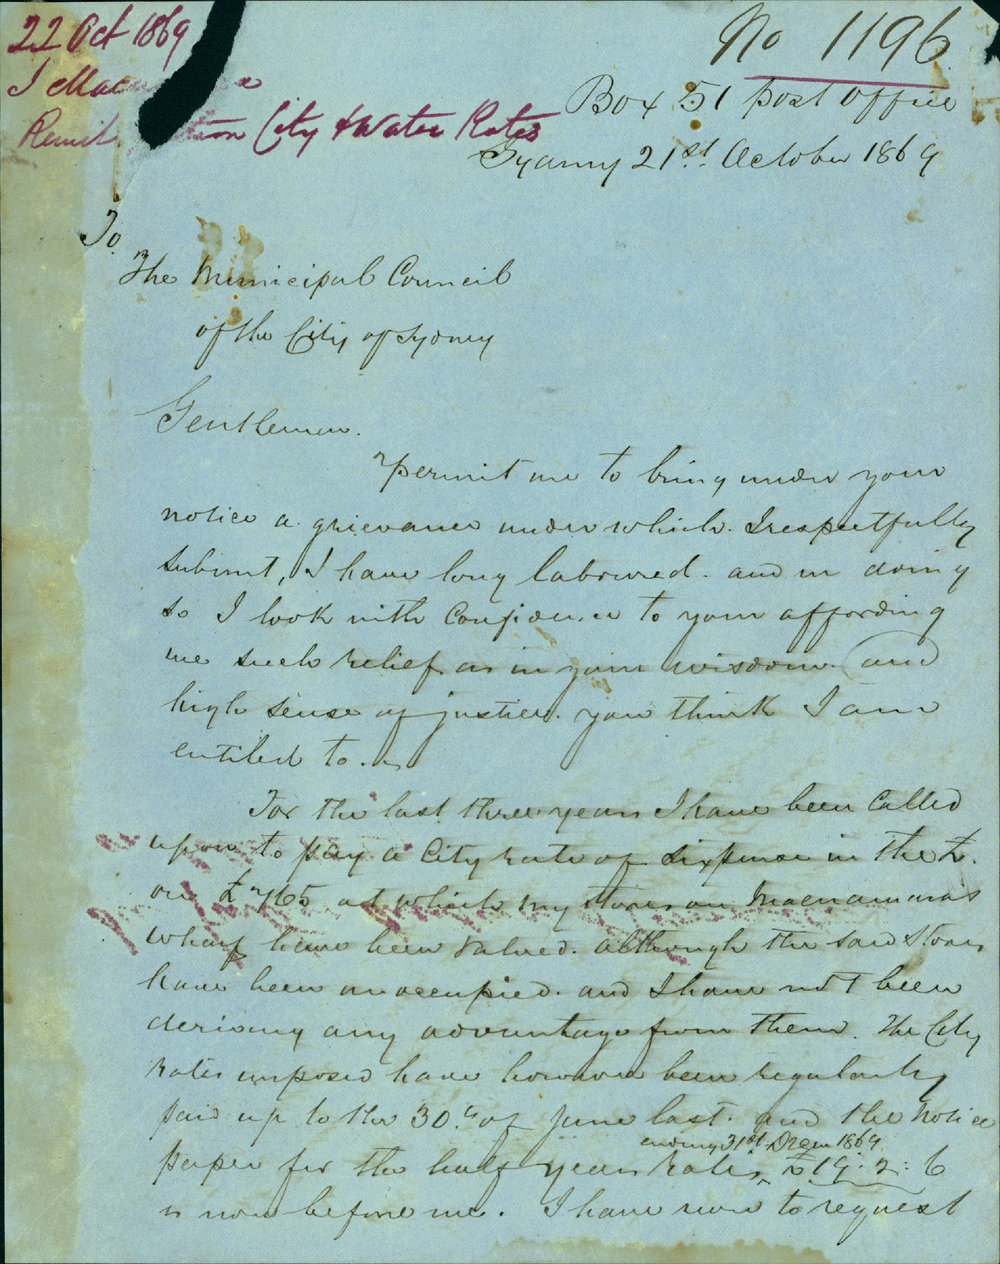 22 Oct 1869
No 1196
J Macna
Remit tion City & Water Rates
Box 51 post office
Sydney 21st October 1869
To
The Municipal Council
of the City of Sydney
Gentlemen.
permit me to bring under your
notice a grievance under which I respectfully
submit, I have long laboured. and in doing
so I look with confidence to your affording
me such relief as in your wisdom and
high sense of justice. you think I am
entitled to.
For the last three years I have been called
upon to pay a City rate of sixpence in the £.
on £765 at which my stores on Macnamara's
wharf have been valued. although the said Stores
have been unoccupied. and I have not been
deriving any advantage from them. The City
rates imposed have however been regularly
paid up to the 30th of June last. and the notice
ending 31st Decem 1869
paper for the half years rates, £19.2.6
is now before me. I have now to request